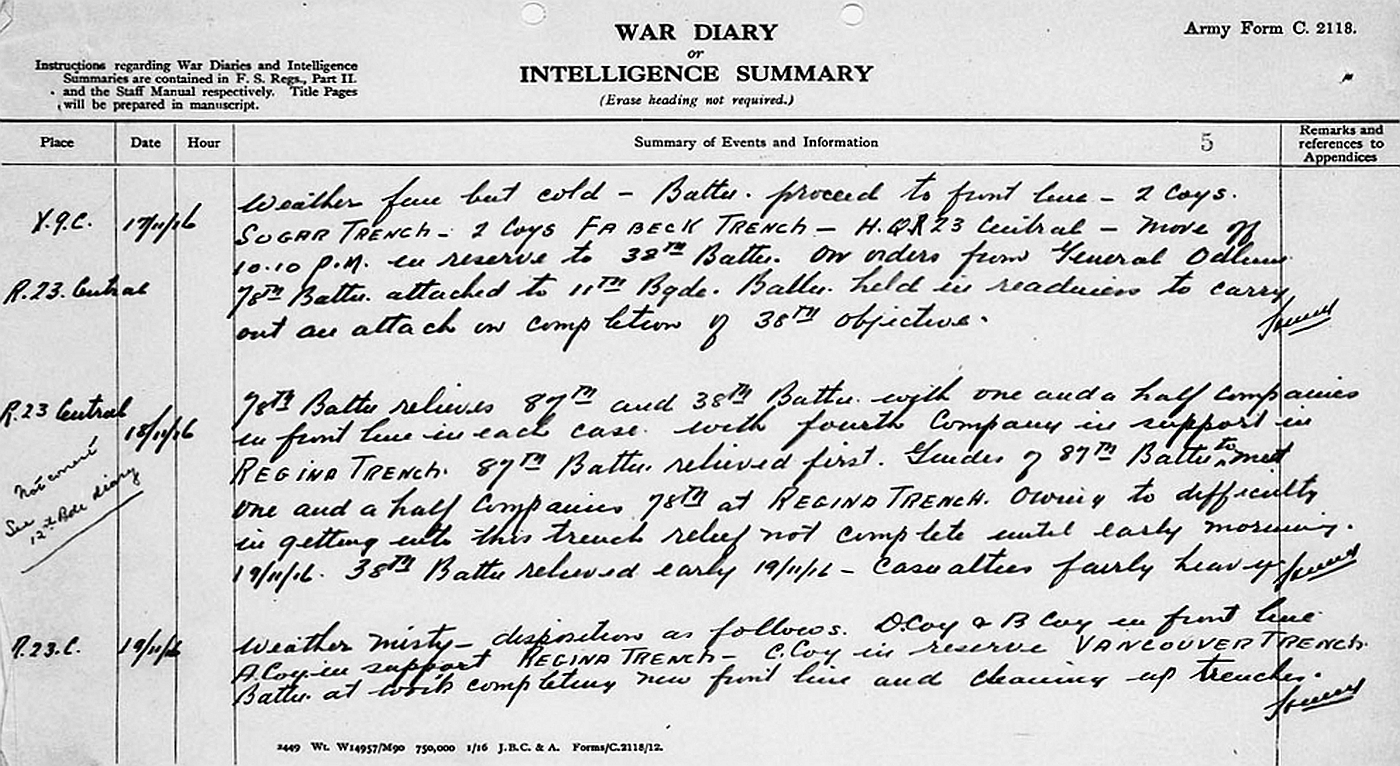 WAR DIARY
or
INTELLIGENCE SUMMARY
(Erase heading not required.)
Army Form C. 2118.
Instructions regarding War Diaries and Intelligence
Summaries are contained in F. S. Regs., Part II.
and the Staff Manual respectively. Title Pages
will be prepared in manuscript.
Place Date Hour Summary of Events and Information 5 Remarks and
references to
Appendices
X.9.C. 17/11/16 Weather fine but cold – Battn. proceed to front line – 2 Coys.
SUGAR TRENCH – 2 Coys FABECK TRENCH – H.Q. R23 Central – Move off
10.10 P.M. in reserve to 38TH Battn. On orders from General Odlum
R.23. Central 78TH Battn. attached to 11TH Bgde. Battn. held in readiness to carry
out an attack on completion of 38TH objective.
R.23 Central 78TH Battn relieves 87TH and 38TH Battn. with one and a half companies
18/11/16 in front line in each case. with fourth Company in support in
REGINA TRENCH. 87TH Battn. relieved first. Guides of 87TH Battn to meet
one and a half Companies 78TH at REGINA TRENCH. Owing to difficulty
in getting into this trench relief not complete until early morning.
19/11/16. 38TH Battn relieved early 19/11/16 – Casualties fairly heavy
Not correct
See
12th Bde diary
R.23.C. 19/11/16 Weather misty – disposition as follows. D.Coy & B Coy in front line
A.Coy in support REGINA TRENCH – C.Coy in reserve VANCOUVER TRENCH.
Battn. at work completing new front line and cleaning up trenches.
2449 Wt. W14957/M90 750,000 1/16 J.B.C. & A. Forms/C.2118/12.